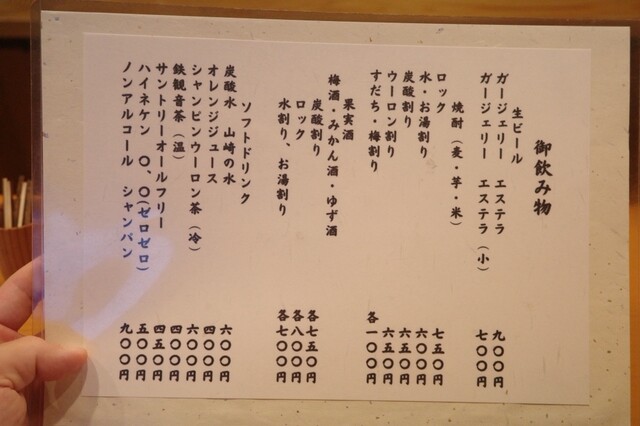 御飲み物
生ビール
ガージェリー エステラ 九〇〇円
ガージェリー エステラ(小) 七〇〇円
焼酎(麦・芋・米)
ロック 七五〇円
水・お湯割り 六〇〇円
炭酸割り 六五〇円
ウーロン割り 六五〇円
すだち・梅割り 各一〇〇円
果実酒
梅酒・みかん酒・ゆず酒
炭酸割り 各七五〇円
ロック 各八〇〇円
水割り、お湯割り 各七〇〇円
ソフトドリンク
炭酸水 山崎の水 六〇〇円
オレンジジュース 四〇〇円
シャンピンウーロン茶(冷) 六〇〇円
鉄観音茶(温) 四〇〇円
サントリーオールフリー 四五〇円
ハイネケン 〇、〇(ゼロゼロ) 五〇〇円
ノンアルコール シャンパン 九〇〇円